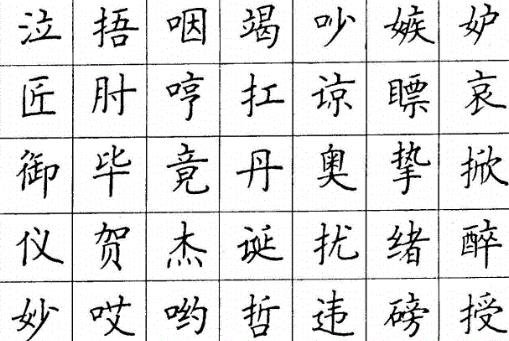 泣捂咽竭吵嫉妒
匠肘哼扛谅瞟哀
御毕竟丹奥挚掀
仪贺杰诞扰绪醉
妙哎哟哲违磅授